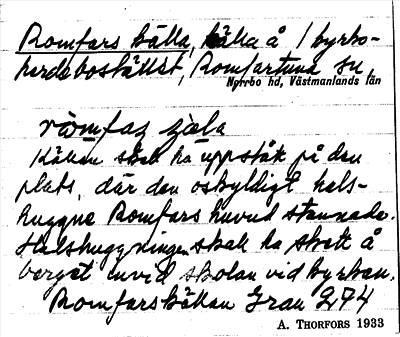 Romfars källa, källa å kyrko-
herdebostället, Romfartuna sn,
Nyrrbo hd, Västmanlands län
römfaz tjala
Källan skall ha uppstått på den
plats, där den oskyldigt hals-
huggne Romfars huvud stannade.
Halshuggningen skall ha skett å
berget invid skolan vid kyrkan.
Romfarskällan Gran 274
A. THORFORS 1933